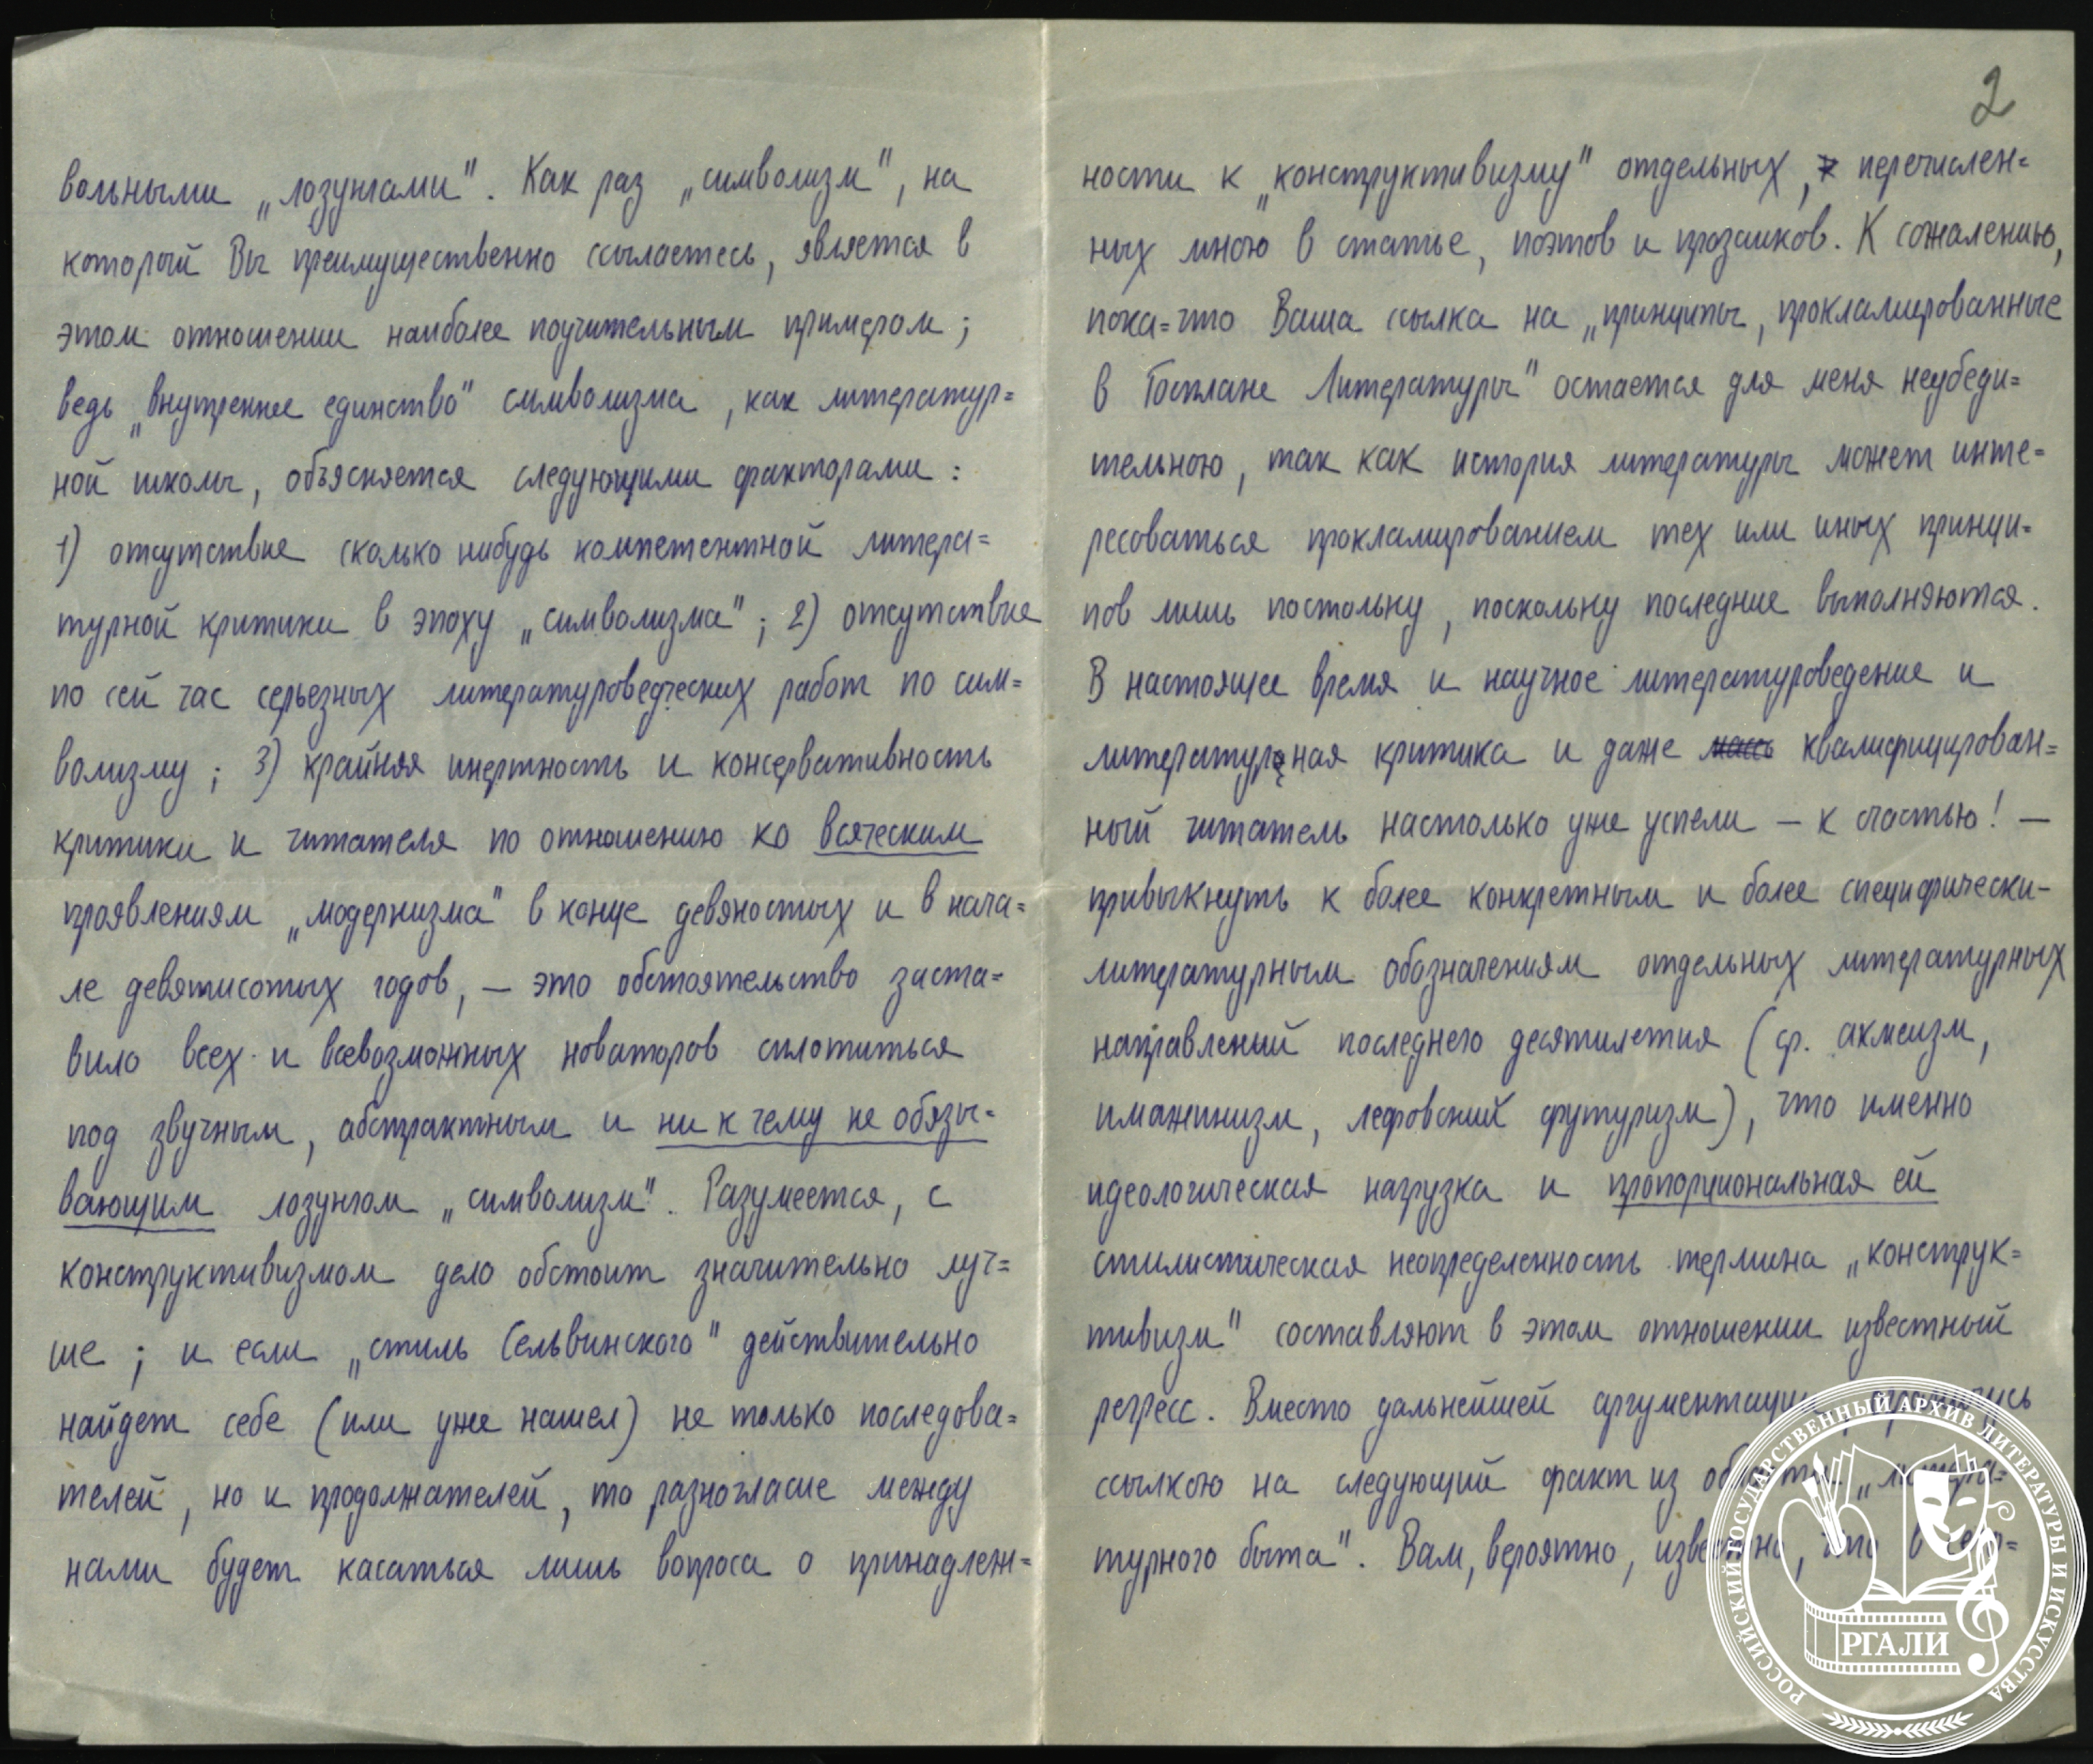 вольными „лозунгами". Как раз „символизм", на
который Вы преимущественно ссылаетесь, является в
этом отношении наиболее поучительным примером;
ведь „внутреннее единство" символизма, как литератур=
ной школы, объясняется следующими факторами:
1) отсутствие сколько нибудь компетентной литера=
турной критики в эпоху „символизма"; 2) отсутствие
по сей час серьезных литературоведческих работ по сим=
волизму; 3) крайняя инертность и консервативность
критики и читателя по отношению ко всяческим
проявлениям „модернизма" в конце девяностых и в нача=
ле девятисотых годов, — это обстоятельство заста=
вило всех и всевозможных новаторов сплотиться
под звучным, абстрактным и ни к чему не обязы=
вающим лозунгом „символизм". Разумеется, с
конструктивизмом дело обстоит значительно луч=
ше; и если „стиль Сельвинского" действительно
найдет себе (или уже нашел) не только последова=
телей, но и продолжателей, то разногласие между
нами будет касаться лишь вопроса о принадлеж=
2
ности к „конструктивизму" отдельных, перечислен=
ных мною в статье, поэтов и прозаиков. К сожалению,
пока=что Ваша ссылка на „принципы, прокламированные
в Госплане Литературы" остается для меня неубеди=
тельною, так как история литературы может инте=
ресоваться прокламированием тех или иных принци=
пов лишь постольку, поскольку последние выполняются.
В настоящее время и научное литературоведение и
литературная критика и даже квалифицирован=
ный читатель настолько уже успели — к счастью! —
привыкнуть к более конкретным и более специфически-
литературным обозначениям отдельных литературных
направлений последнего десятилетия (ср. акмеизм,
имажинизм, лефовский футуризм), что именно
идеологическая нагрузка и пропорциональная ей
стилистическая неопределенность термина „конструк=
тивизм" составляют в этом отношении известный
регресс. Вместо дальнейшей аргументации, ограничусь
ссылкою на следующий факт из области „литера=
турного быта". Вам, вероятно, известно, что в
РОССИЙСКИЙ ГОСУДАРСТВЕННЫЙ АРХИВ ЛИТЕРАТУРЫ И ИСКУССТВА
РГАЛИ